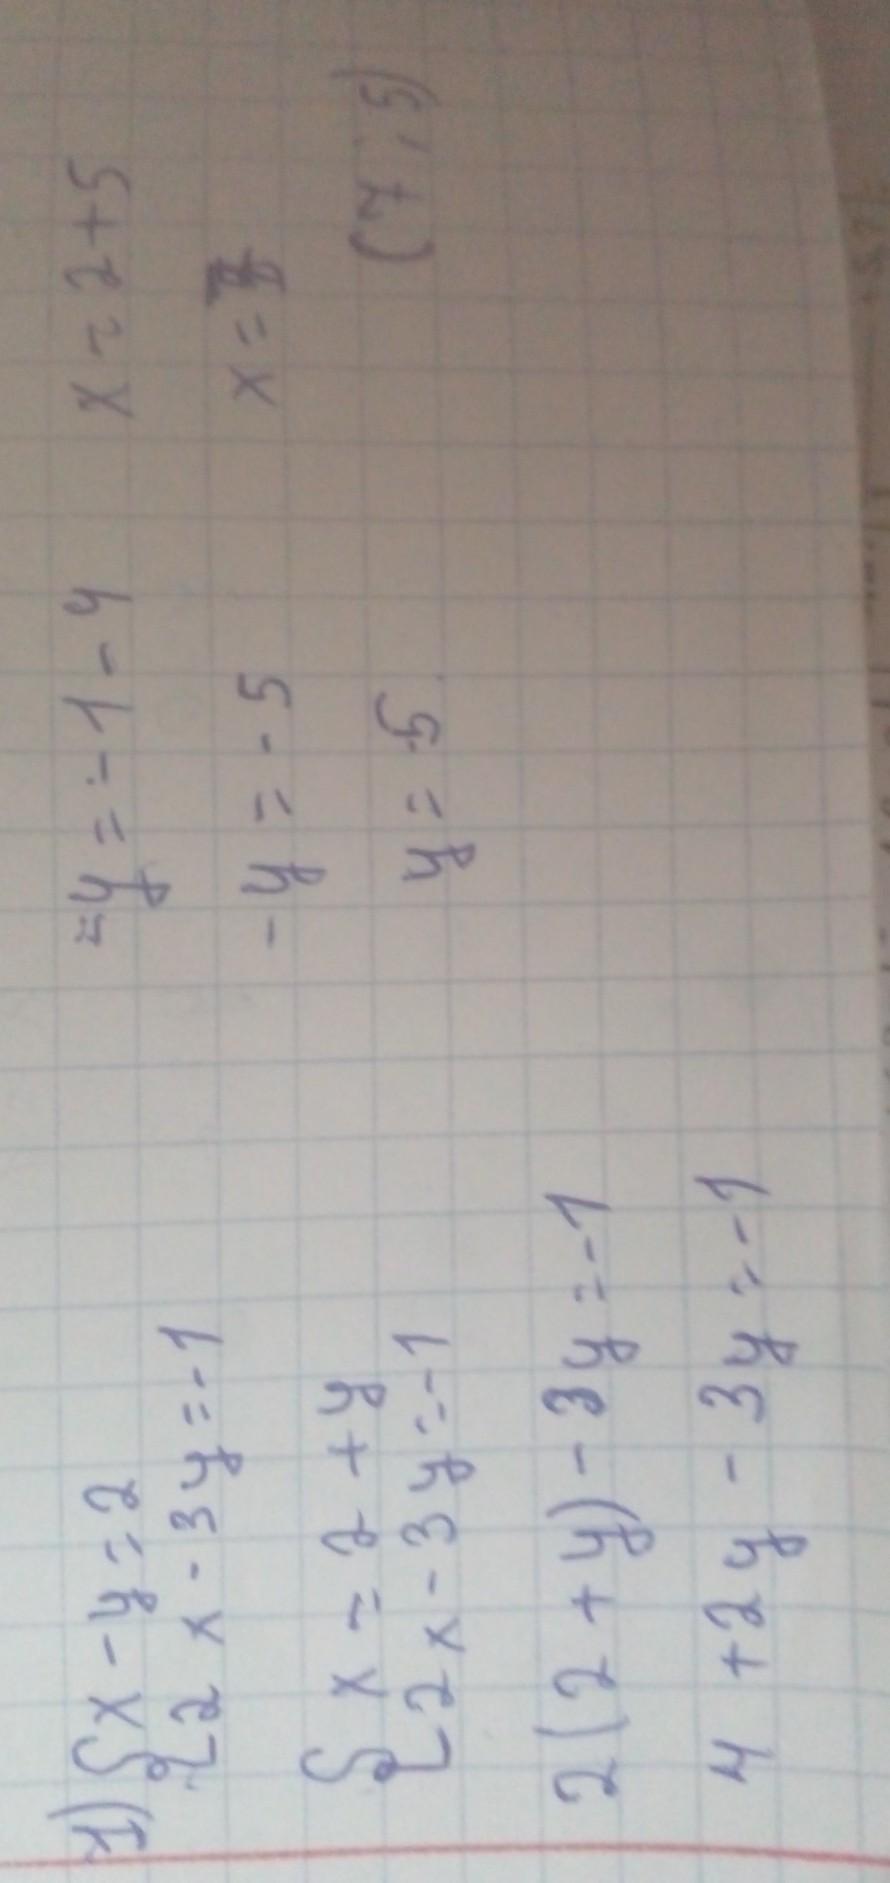 1) { x - y = 2
{ 2x - 3y = -1
{ x = 2 + y
{ 2x - 3y = -1
2(2 + y) - 3y = -1
4 + 2y - 3y = -1
-y = -1 - 4
-y = -5
y = 5
x = 2 + 5
x = 7
(7; 5)